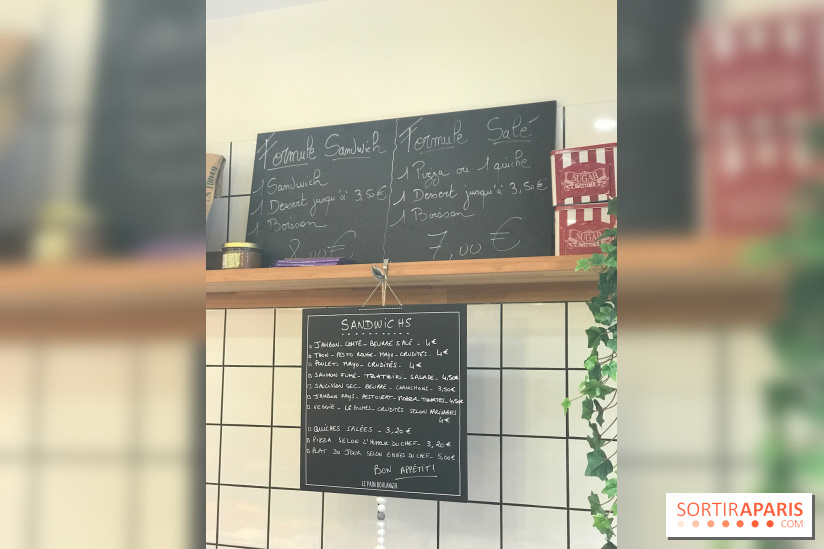 Formule Sandwich
1 Sandwich
1 Dessert jusqu'à 3,50€
1 Boisson
8,00€
Formule Salé
1 Pizza ou 1 quiche
1 Dessert jusqu'à 3,50€
1 Boisson
7,00 €
SUGAR
SUGAR
SANDWICHS
JAMBON - COMTÉ - BEURRE SALÉ - 4€
THON - PESTO ROUGE - MAYO - CRUDITÉS - 4€
POULET - MAYO - CRUDITÉS - 4€
SAUMON FUMÉ - TZATZIKI - SALADE - 4,50€
SAUCISSON SEC - BEURRE - CORNICHONS - 3,50€
JAMBON PAYS - PESTO VERT - MOZZA - TOMATES - 4,50€
VEGGIE - LÉGUMES - CRUDITÉS SELON ARRIVAGES
4€
QUICHES SALÉES - 3,20€
PIZZA SELON L'HUMEUR DU CHEF - 3,20€
PLAT DU JOUR SELON ENVIES DU CHEF - 5,00€
BON APPÉTIT!
LE PAIN BOULANGER
SORTIRAPARIS
.COM